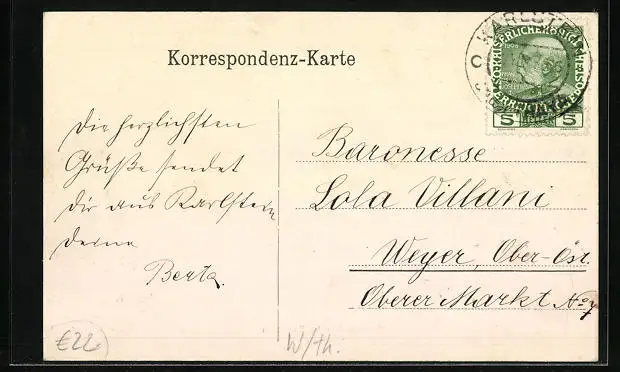 Korrespondenz-Karte
KARLSTEIN
KAISERLICHEKÖNIGLICHE
ÖSTERREICHISCHE
1908
5 5
Die herzlichsten
Grüße sendet
Dir aus Karlstein
Deine
Berta.
Baronesse
Lola Villani
Weyer, Ober-Öst.
Oberer Markt No 7
€22
W/th.